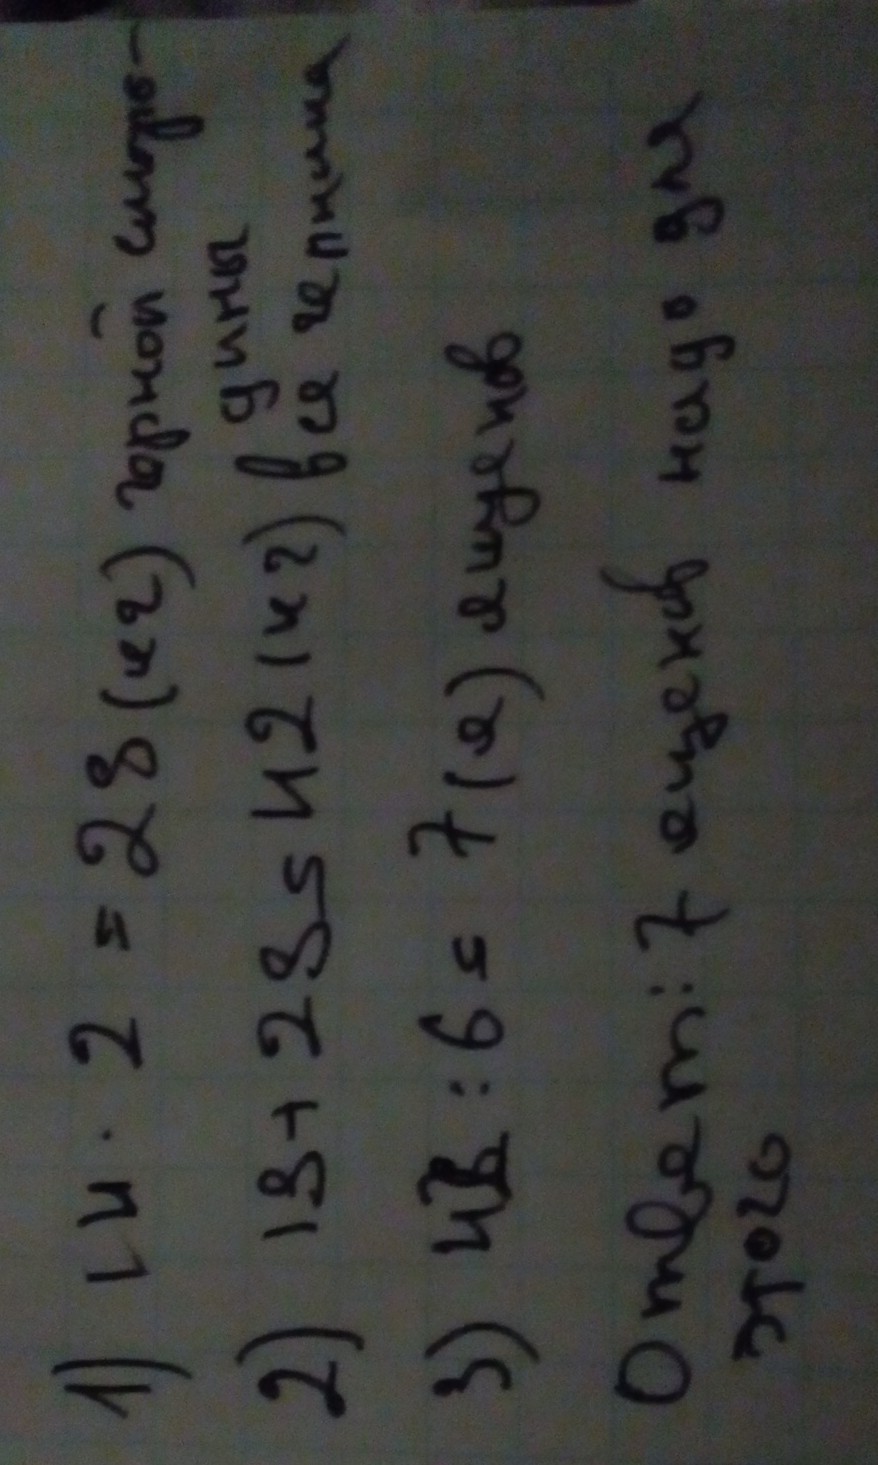 1) 14 · 2 = 28 (кг) чорной сморо-
дины
2) 18 + 28 = 42 (кг) вся черника
3) 42 : 6 = 7 (я) ящеков
Ответ: 7 ящеков надо для
этого